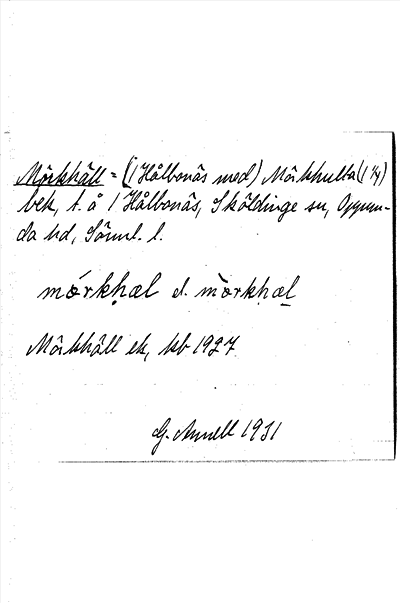 Mörkhäll = (1 Hålbonäs med) Mörkhulta (1 1/4)
bek, t. å 1 Hålbonäs, Sköldinge sn, Oppun-
da hd, Söml. l.
mórkhæl el. mòrkhæl
Mörkhäll ek, kb 1927
G. Annell 1931